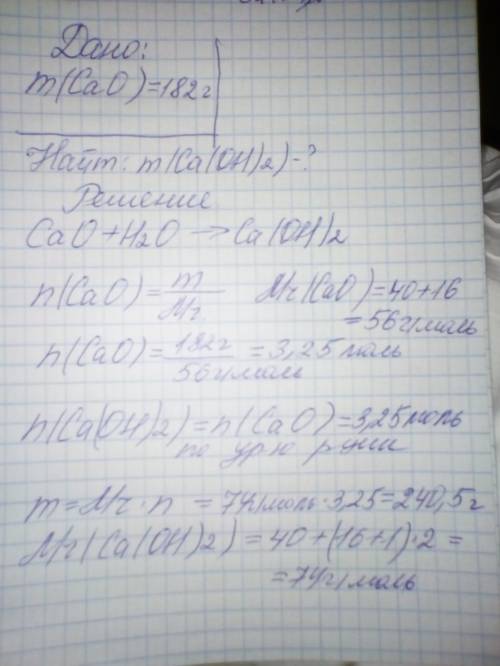 Дано:
m(CaO)=182г
Найт: m(Ca(OH)2)-?
Решение
CaO+H2O → Ca(OH)2
n(CaO)= m/Mr Mr(CaO)=40+16
=56г/моль
n(CaO)= 182г/56г/моль =3,25 моль
n(Ca(OH)2)=n(CaO)=3,25моль
по ур-ю р-ции
m=Mr·n =74г/моль·3,25=240,5г
Mr(Ca(OH)2)=40+(16+1)·2=
=74г/моль